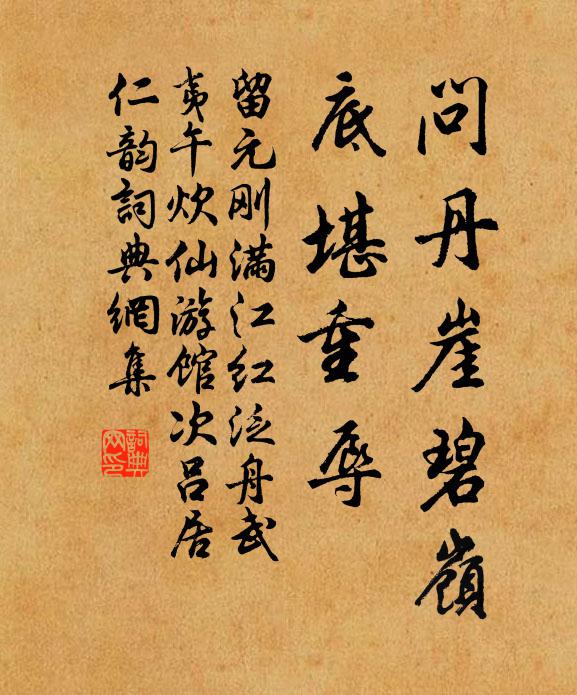 問丹崖碧嶺
底堪重辱
留元刚滿江红泛舟武
夷午炊仙游館次吕居
仁韵詞典網集
詞典
网印